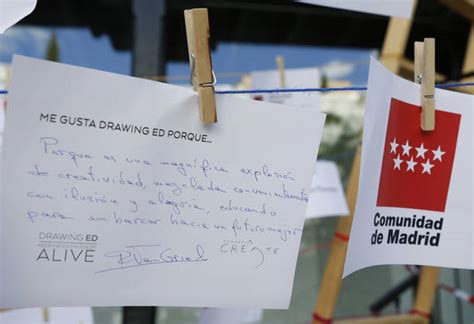 ME GUSTA DRAWING ED PORQUE...
Porque es una magnífica explosión
de creatividad, mezclada convenientemente
con ilusión y alegría, educando
para embarcar hacia un futuro mejor
DRAWING ED
ALIVE
CREΛTE
Comunidad
de Madrid